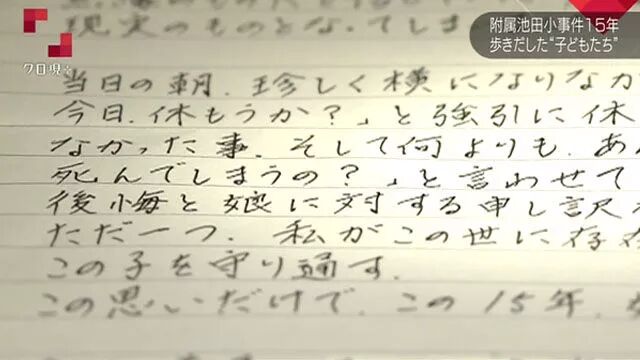 附属池田小事件15年
歩きだした“子どもたち”
クロ現+
現実のものとなってしま
当日の朝、珍しく横になりなが
今日、休もうか？」と強引に休
なかった事、そして何よりも、あ
死んでしまうの？」と言わせて
後悔と娘に対する申し訳
ただ一つ、私がこの世に存
この子を守り通す。
この思いだけで、この15年、